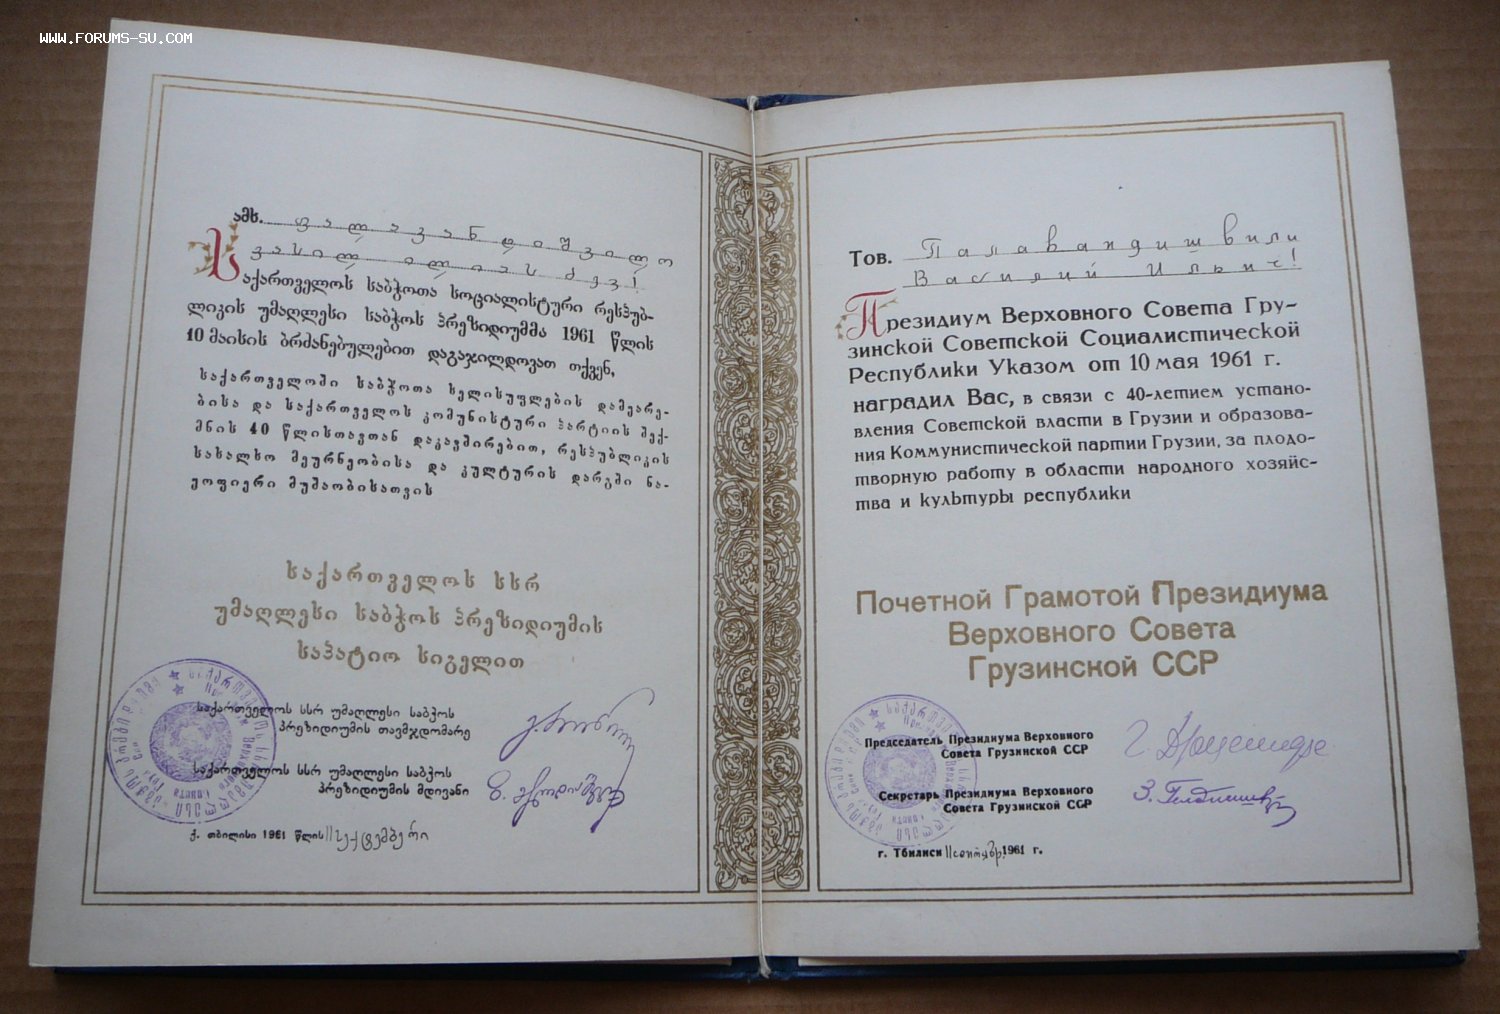 WWW.FORUMS-SU.COM
ამხ. ფალავანდიშვილო
ვასილ ილიას ძევ!
საქართველოს საბჭოთა სოციალისტური რესპუბ-
ლიკის უმაღლესი საბჭოს პრეზიდიუმმა 1961 წლის
10 მაისის ბრძანებულებით დაგაჯილდოვათ თქვენ,
საქართველოში საბჭოთა ხელისუფლების დამყარე-
ბისა და საქართველოს კომუნისტური პარტიის შექ-
მნის 40 წლისთავთან დაკავშირებით, რესპუბლიკის
სახალხო მეურნეობისა და კულტურის დარგში ნა-
ყოფიერი მუშაობისათვის
საქართველოს სსრ
უმაღლესი საბჭოს პრეზიდიუმის
საპატიო სიგელით
საქართველოს სსრ უმაღლესი საბჭოს
პრეზიდიუმის თავმჯდომარე
საქართველოს სსრ უმაღლესი საბჭოს
პრეზიდიუმის მდივანი
ქ. თბილისი 1961 წლის 11 სექტემბერი
Тов. Палавандишвили
Василий Ильич!
Президиум Верховного Совета Гру-
зинской Советской Социалистической
Республики Указом от 10 мая 1961 г.
наградил Вас, в связи с 40-летием устано-
вления Советской власти в Грузии и образова-
ния Коммунистической партии Грузии, за плодо-
творную работу в области народного хозяйс-
тва и культуры республики
Почетной Грамотой Президиума
Верховного Совета
Грузинской ССР
Председатель Президиума Верховного
Совета Грузинской ССР
Г. Дзоценидзе
Секретарь Президиума Верховного
Совета Грузинской ССР
г. Тбилиси 11 сентябр. 1961 г.